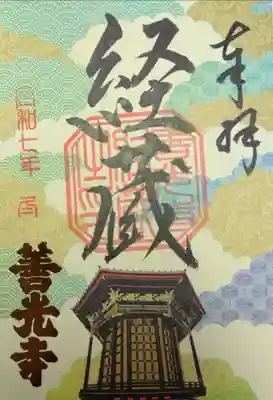 奉拝
経蔵
令和七年
善光寺